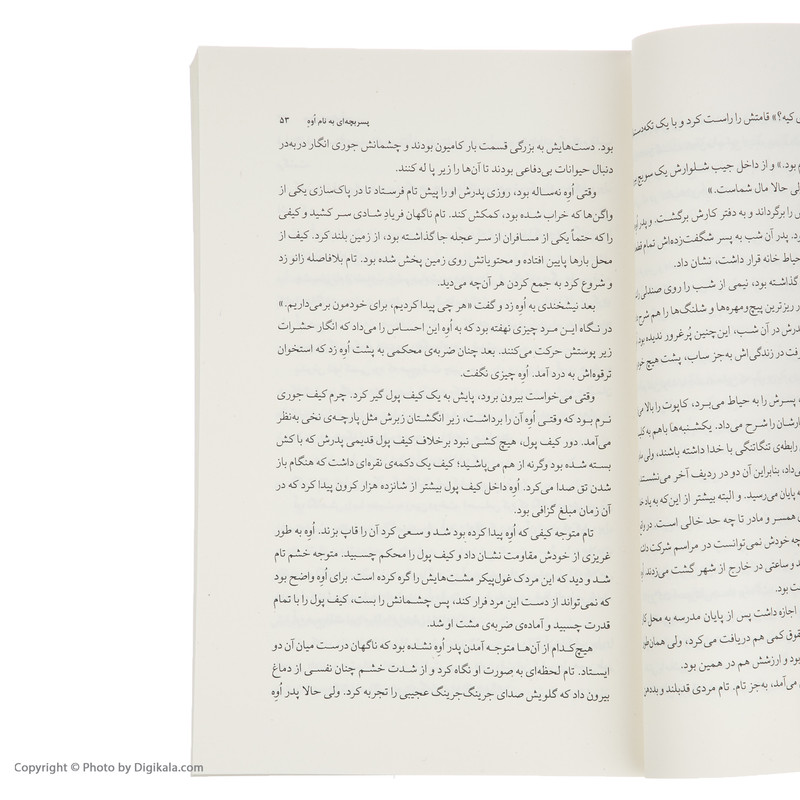 ی کیه؟» قامتش را راست کرد و با یک
م بود.» و از داخل جیب شلوارش یک سویچ
لی حالا مال شماست.»
را برگرداند و به دفتر کارش برگشت. و پدر
ود. پدر آن شب به پسر شگفت‌زده‌اش تمام
حیاط خانه قرار داشت، نشان داد.
گذاشته بود، نیمی از شب را روی صندلی
ر ریزترین پیچ‌ومهره‌ها و شلنگ‌ها را هم شرح
درش در آن شب، این‌چنین پُرغرور ندیده بود
فت در زندگی‌اش به‌جز ساب، پشت هیچ
ه پسرش را به حیاط می‌برد، کاپوت را بالا
ارشان را شرح می‌داد. یکشنبه‌ها باهم به
رابطه‌ی تنگاتنگی با خدا داشته باشند، ولی
می‌داد، بنابراین آن دو در ردیف آخر می‌نشستند
ه پایان می‌رسید. و البته بیشتر از این‌که به یاد
ی همسر و مادر تا چه حد خالی است. در
چه خودش نمی‌توانست در مراسم شرکت
د و ساعتی در خارج از شهر گشت می‌زدند
ت بود.
اجازه داشت پس از پایان مدرسه به محل
قوق کمی هم دریافت می‌کرد، ولی
بود و ارزشش هم در همین بود.
می‌آمد، به‌جز تام. تام مردی قدبلند و
پسربچه‌ای به نام اُوِه ۵۳
بود. دست‌هایش به بزرگی قسمت بار کامیون بودند و چشمانش جوری انگار دربه‌در
دنبال حیوانات بی‌دفاعی بودند تا آن‌ها را زیر پا له کنند.
وقتی اُوِه نه‌ساله بود، روزی پدرش او را پیش تام فرستاد تا در پاک‌سازی یکی از
واگن‌ها که خراب شده بود، کمکش کند. تام ناگهان فریادِ شادی سر کشید و کیفی
را که حتماً یکی از مسافران از سر عجله جا گذاشته بود، از زمین بلند کرد. کیف از
محل بارها پایین افتاده و محتویاتش روی زمین پخش شده بود. تام بلافاصله زانو زد
و شروع کرد به جمع کردن هر آن‌چه می‌دید.
بعد نیشخندی به اُوِه زد و گفت «هر چی پیدا کردیم، برای خودمون برمی‌داریم.»
در نگاه این مرد چیزی نهفته بود که به اُوِه این احساس را می‌داد که انگار حشرات
زیر پوستش حرکت می‌کنند. بعد چنان ضربه‌ی محکمی به پشت اُوِه زد که استخوان
ترقوه‌اش به درد آمد. اُوِه چیزی نگفت.
وقتی می‌خواست بیرون برود، پایش به یک کیف پول گیر کرد. چرم کیف جوری
نرم بود که وقتی اُوِه آن را برداشت، زیر انگشتان زبرش مثل پارچه‌ی نخی به‌نظر
می‌آمد. دور کیف پول، هیچ کشی نبود برخلاف کیف پول قدیمی پدرش که با کش
بسته شده بود وگرنه از هم می‌پاشید؛ کیف یک دکمه‌ی نقره‌ای داشت که هنگام باز
شدن تق صدا می‌کرد. اُوِه داخل کیف پول بیشتر از شانزده هزار کرون پیدا کرد که در
آن زمان مبلغ گزافی بود.
تام متوجه کیفی که اُوِه پیدا کرده بود شد و سعی کرد آن را قاپ بزند. اُوِه به طور
غریزی از خودش مقاومت نشان داد و کیف پول را محکم چسبید. متوجه خشم تام
شد و دید که این مردک غول‌پیکر مشت‌هایش را گره کرده است. برای اُوِه واضح بود
که نمی‌تواند از دست این مرد فرار کند، پس چشمانش را بست، کیف پول را با تمام
قدرت چسبید و آماده‌ی ضربه‌ی مشت او شد.
هیچ‌کدام از آن‌ها متوجه آمدن پدر اُوِه نشده بود که ناگهان درست میان آن دو
ایستاد. تام لحظه‌ای به صورت او نگاه کرد و از شدت خشم چنان نفسی از دماغ
بیرون داد که گلویش صدای جرینگ‌جرینگ عجیبی را تجربه کرد. ولی حالا پدر اُوِه
Copyright © Photo by Digikala.com